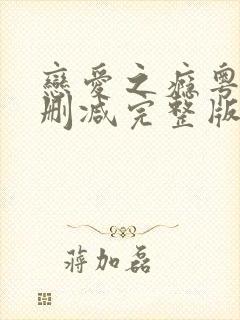 戀愛之癮粵
刪減完整版
蔣加磊